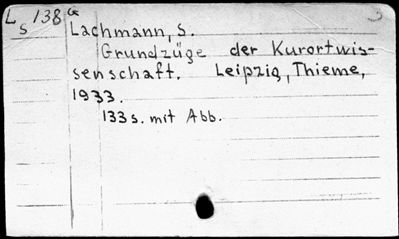 L 138 G
s
Lachmann, S.
Grundzüge der Kurortwis-
senschaft. Leipzig, Thieme,
1933.
133 s. mit Abb.